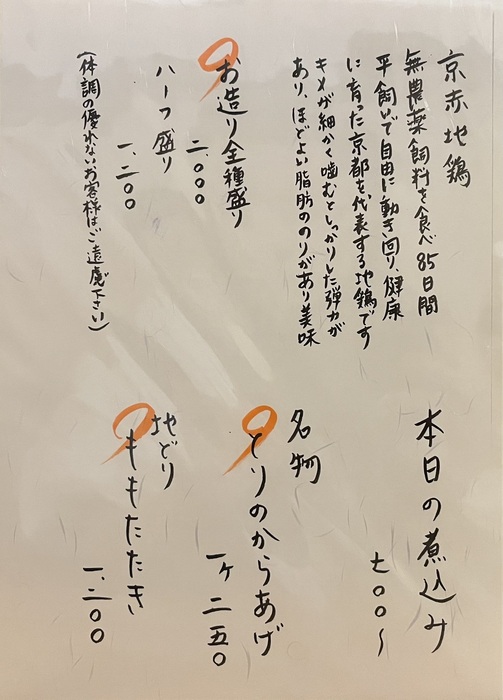 京赤地鶏
無農薬飼料を食べ85日間
平飼いで自由に動き回り、健康
に育った京都を代表する地鶏です
キメが細かく噛むとしっかりした弾力が
あり、ほどよい脂肪ののりがあり美味
お造り全種盛り
二.000
ハーフ盛り
一.二00
(体調の優れないお客様はご遠慮下さい)
本日の煮込み
七00〜
名物
とりのからあげ
一ケ 二五0
地どり
ももたたき
一.二00